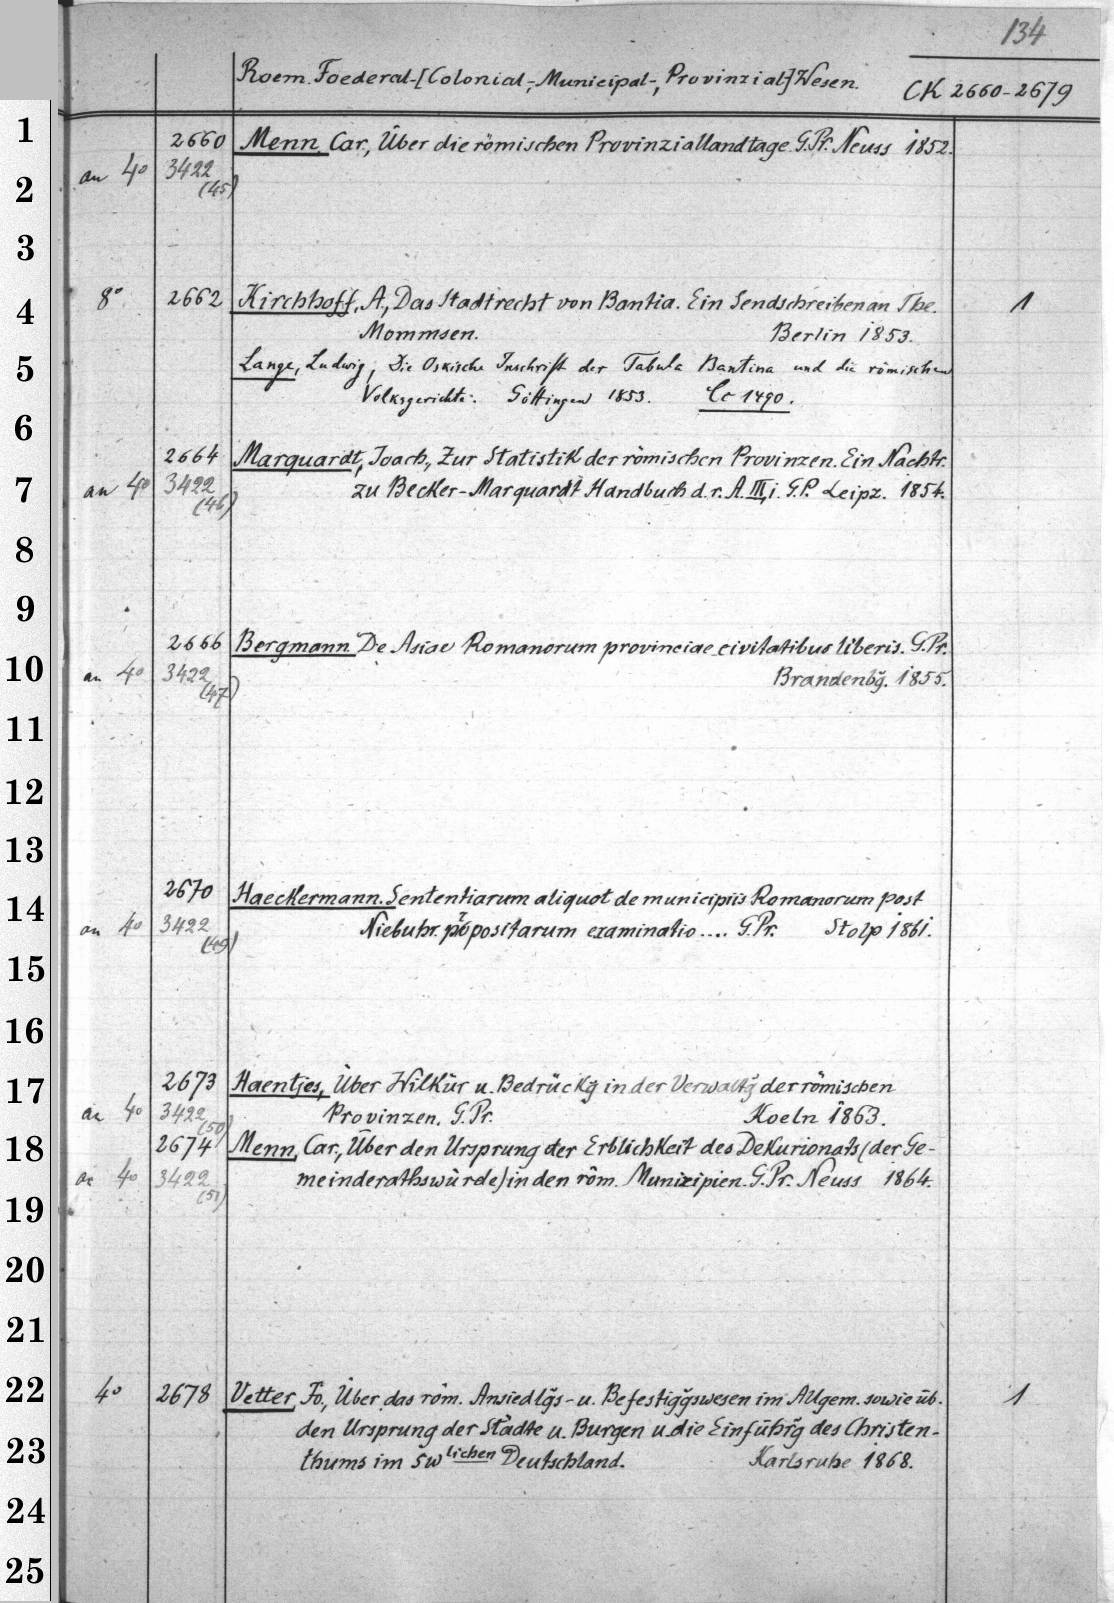 134
Roem. Foederal-[Colonial-, Municipal-, Provinzial-]Wesen.
CK 2660-2679
1
2660 Menn, Car., Über die römischen Provinziallandtage. G.Pr. Neuss 1852.
2 an 4° 3422 (45)
3
8° 2662 Kirchhoff, A., Das Stadtrecht von Bantia. Ein Sendschreiben an The. 1
4
Mommsen. Berlin 1853.
5 Lange, Ludwig, Die Oskische Inschrift der Tabula Bantina und die römischen
Volksgerichte. Göttingen 1853. Cc 1490.
6
2664 Marquardt, Joach., Zur Statistik der römischen Provinzen. Ein Nachtr.
7 an 4° 3422 (46) zu Becker-Marquardt Handbuch d. r. A. III, i. G.P. Leipz. 1854.
8
9
2666 Bergmann De Asiae Romanorum provinciae civitatibus liberis. G.Pr.
10 an 4° 3422 (47) Brandenbg̃. 1855.
11
12
13
2670 Haeckermann. Sententiarum aliquot de municipiis Romanorum post
14 an 4° 3422 (49) Niebuhr. p̃positarum examinatio .... G.Pr. Stolp 1861.
15
16
17 2673 Haentjes, Über Wilkür u. Bedrückg̃ in der Verwaltg̃ der römischen
an 4° 3422 (50) Provinzen. G.Pr. Koeln 1863.
18 2674 Menn, Car., Über den Ursprung der Erblichkeit des Dekurionats (der Ge-
an 4° 3422 (51) meinderathswürde) in den röm. Munizipien. G.Pr. Neuss 1864.
19
20
21
22 4° 2678 Vetter, Fo., Über das röm. Ansiedlg̃s- u. Befestigg̃swesen im Allgem. sowie üb. 1
den Ursprung der Städte u. Burgen u. die Einführg̃ des Christen-
23 thums im swlichen Deutschland. Karlsruhe 1868.
24
25